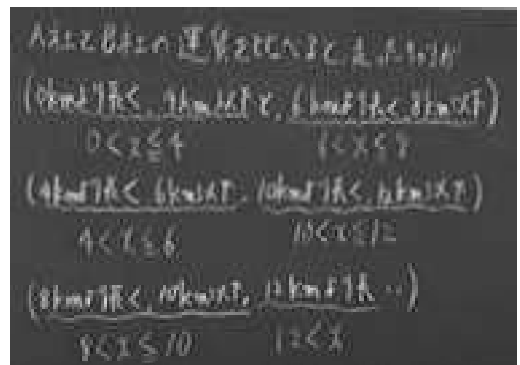 A社とB社の運賃を比べると
(0kmより長く、4km以下と、6kmより長く8km以下)
0<x≦4 6<x≦8
(4kmより長く 6km以下、10kmより長く、12km以下)
4<x≦6 10<x≦12
(8kmより長く、10km以下、12kmより長 ‥)
8<x≦10 12<x